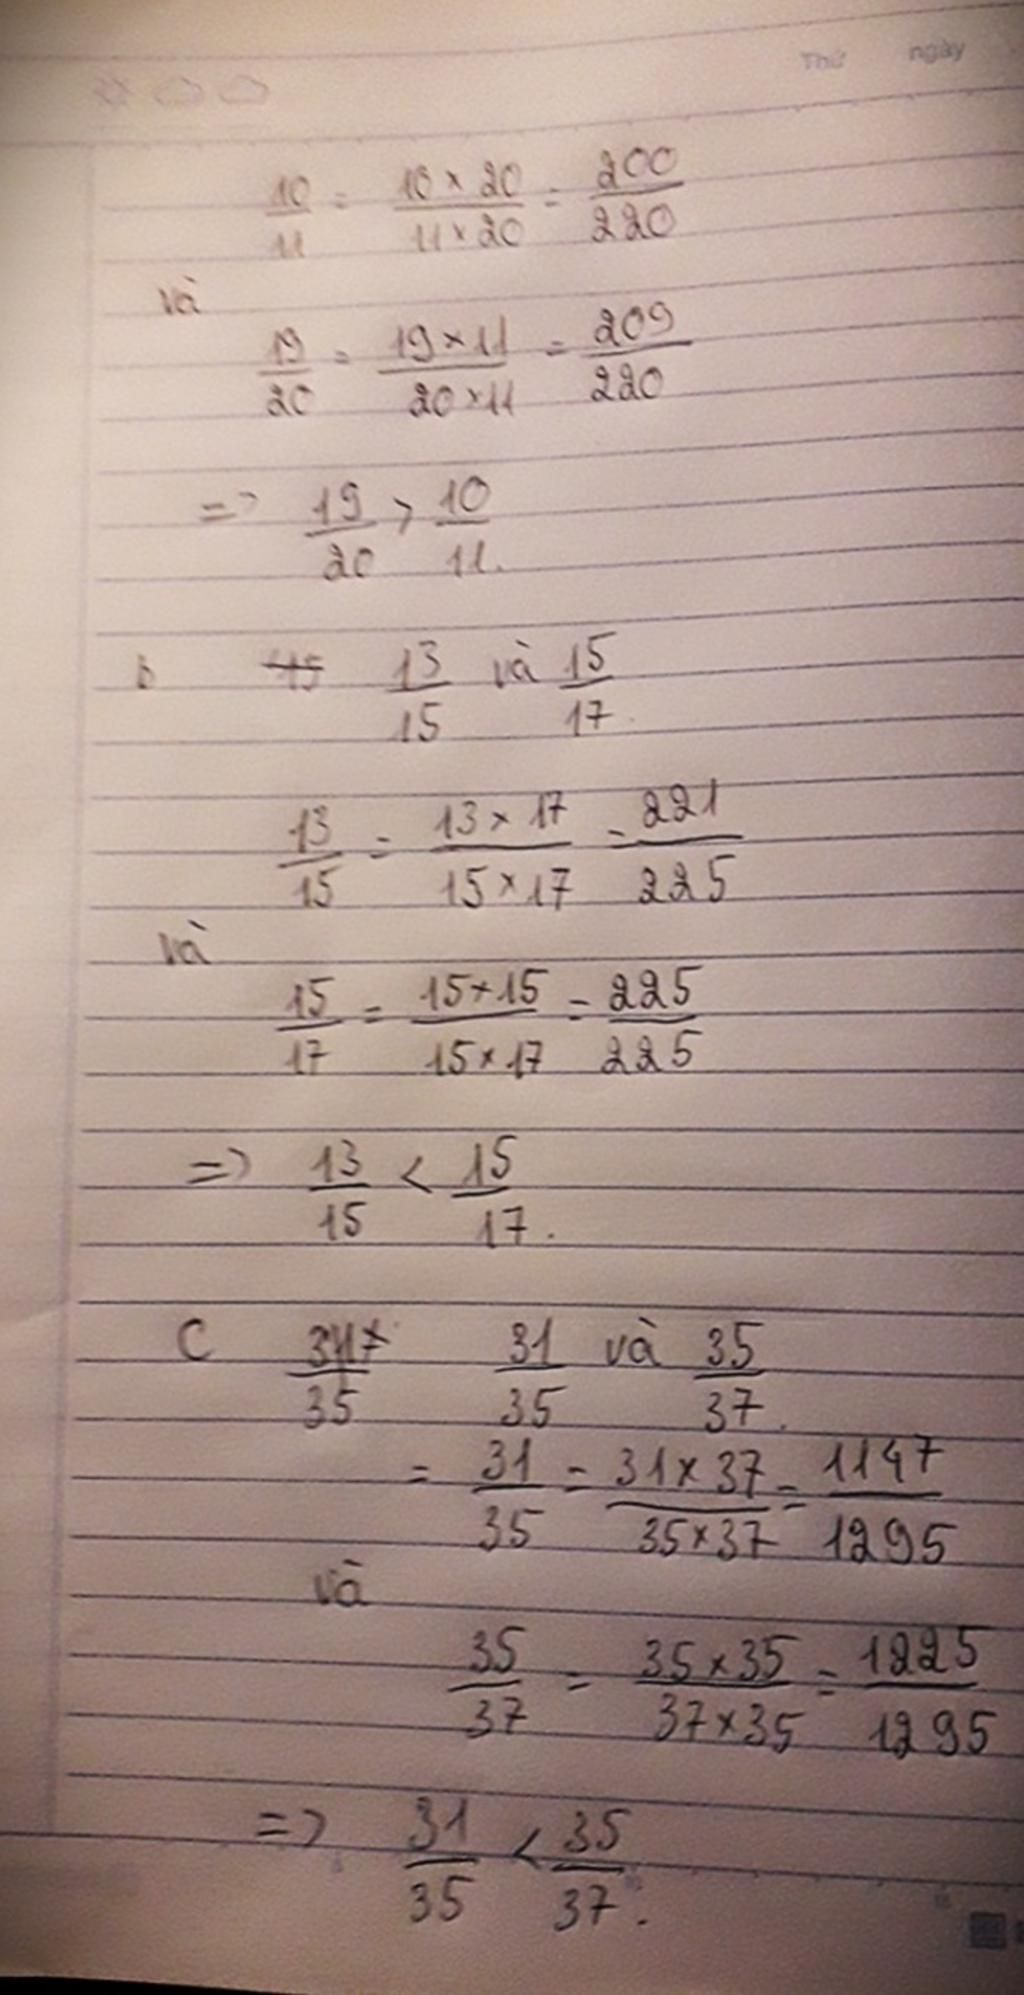 Thứ ngày
10/11 = 10 × 20/11 × 20 = 200/220
và
19/20 = 19 × 11/20 × 11 = 209/220
=> 19/20 > 10/11.
b 13/15 và 15/17.
13/15 = 13 × 17/15 × 17 = 221/225
và
15/17 = 15 × 15/15 × 17 = 225/225
=> 13/15 < 15/17.
C 31/35 và 35/37.
= 31/35 = 31 × 37/35 × 37 = 1147/1295
và
35/37 = 35 × 35/37 × 35 = 1225/1295
=> 31/35 < 35/37.